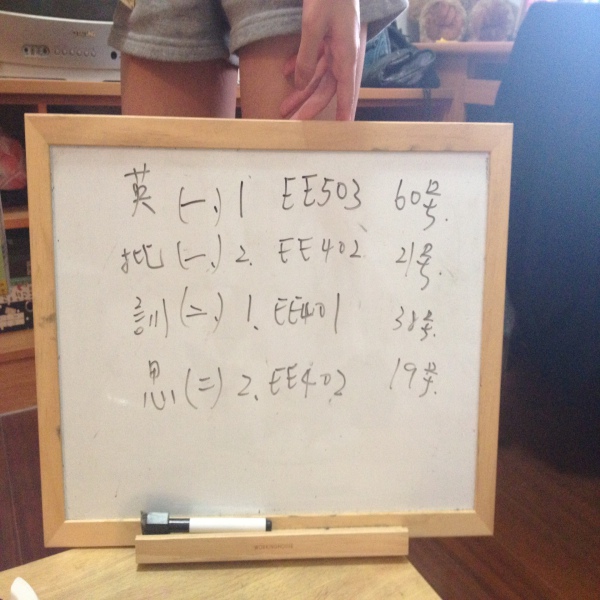 英 (一) 1 EE503 60号.
批 (一) 2. EE402 21号
訓 (二) 1. EE401 38号.
思 (二) 2. EE402 19号.